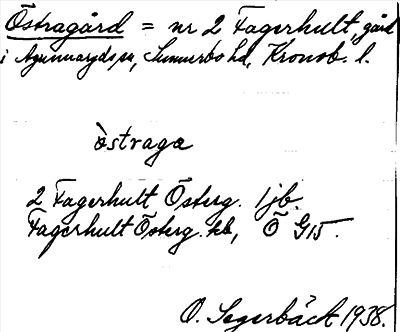 Östragård = nr 2 Fagerhult, gård
i Agunnaryds sn, Sunnerbo hd, Kronob. l.
òstraga
2 Fagerhult Österg. 1 jb.
Fagerhult Österg. kb, Ö G15.
O. Segerbäck 1938.